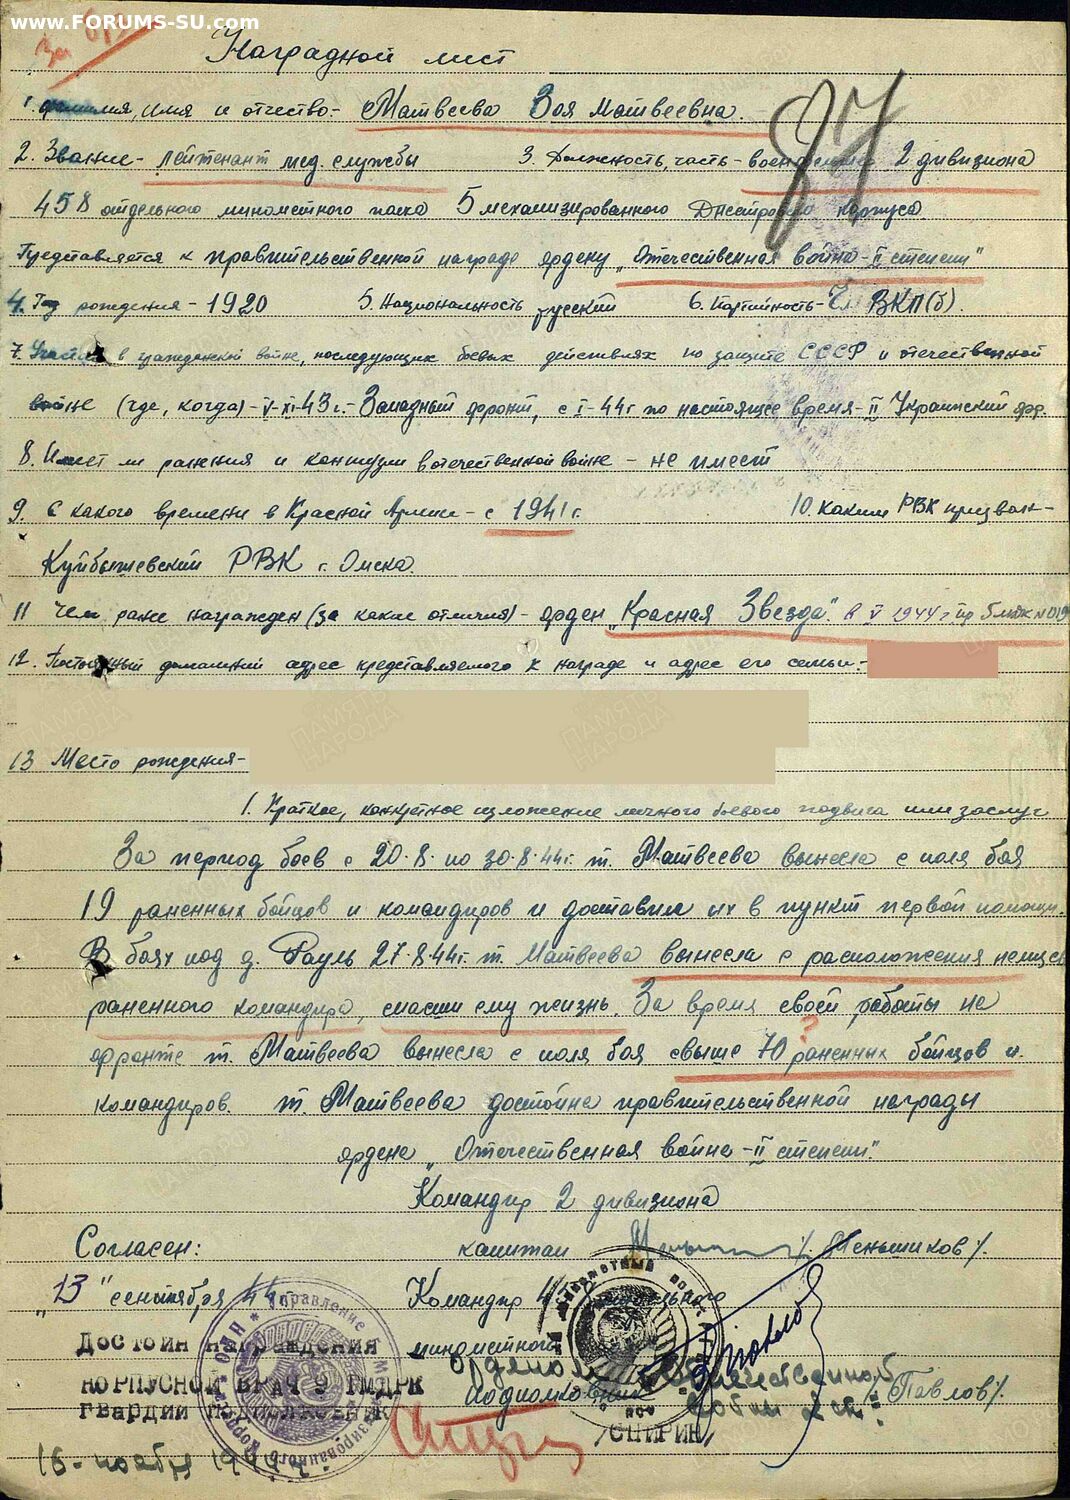 www.FORUMS-SU.com
Наградной лист
1. фамилия, имя и отчество- Матвеева Зоя Матвеевна.
2. Звание- лейтенант мед. службы 3. Должность, часть- 2 дивизиона
458 отдельного минометного полка 5 механизированного Днестровского корпуса
Представляется к правительственной награде ордену „Отечественная война- II степени"
4. Год рождения- 1920 5. Национальность русский 6. Партийность- ВКП(б).
7. Участие в гражданской войне, последующих боевых действиях по защите СССР и отечественной
войне (где, когда)- V-XI-43 г.- Западный фронт, с I-44г по настоящее время- II Украинский фр.
8. Имеет ли ранения и контузии в отечественной войне - не имеет
9. С какого времени в Красной Армии- с 1941 г. 10. Каким РВК призван-
Куйбышевский РВК г. Омска.
11 Чем ранее награжден (за какие отличия)- орден „Красная Звезда". в V 1944 г пр 5 мвк №
12. Постоянный домашний адрес представляемого к награде и адрес его семьи:-
ПАМЯТЬ НАРОДА
ПАМЯТЬ НАРОДА
13 Место рождения-
1. Краткое, конкретное изложение личного боевого подвига или заслуг
За период боев с 20.8. по 30.8.44г. т. Матвеева вынесла с поля боя
19 раненных бойцов и командиров и доставила их в пункт первой помощи.
В боях под д. Рауль 27.8.44г. т. Матвеева вынесла с расположения немцев
раненного командира, спасши ему жизнь. За время своей работы на
фронте т. Матвеева вынесла с поля боя свыше 70 раненных бойцов и
командиров. т. Матвеева достойна правительственной награды
ордена „Отечественная война- II степени".
Командир 2 дивизиона
Согласен: капитан /Меньшиков/.
„13" сентября 44г. Командир отдельного
Достоин награждения минометного
орденом Отечественной
КОРПУСНОЙ ВРАЧ 9 ГМДРК подполковник войны 2 ст. /Павлов/.
ГВАРДИИ ПОДПОЛКОВНИК /СПИРИН/
16- ноября 1944 г